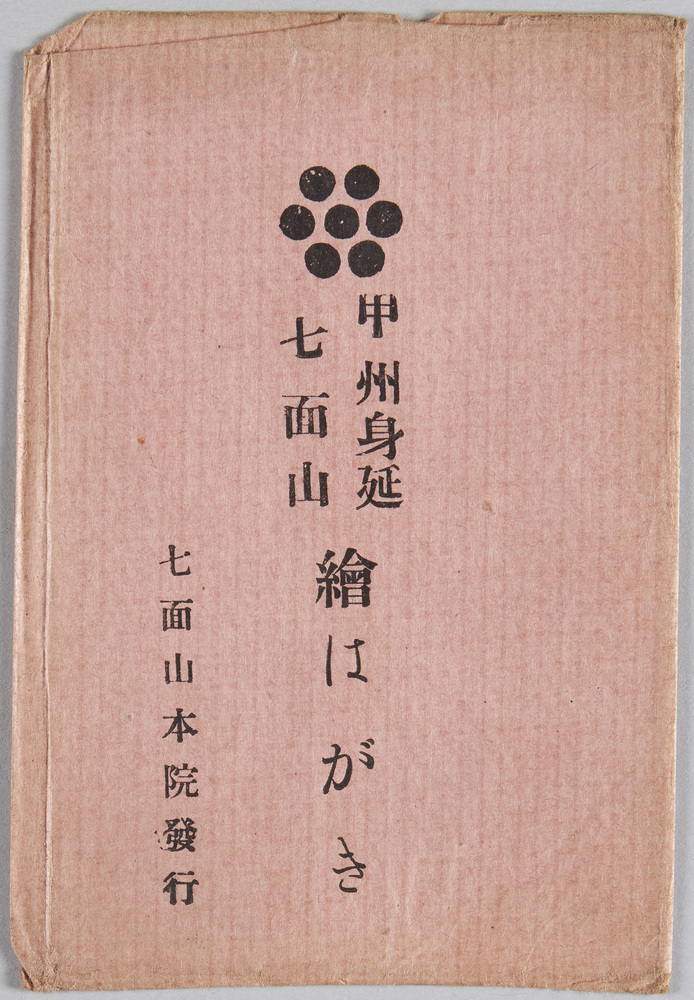 甲州身延
七面山
繪はがき
七面山本院發行